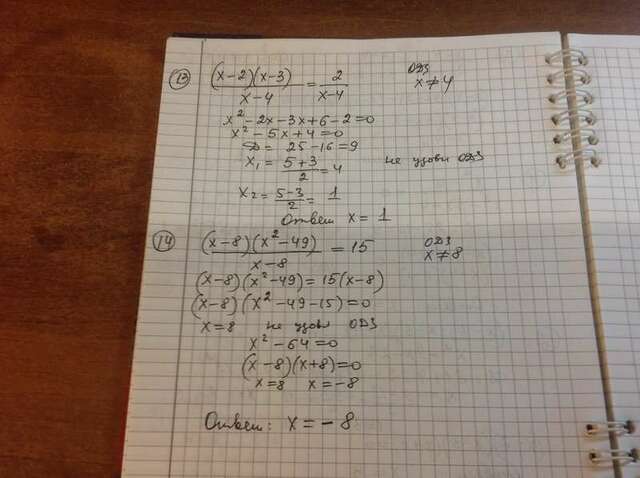 13 (x-2)(x-3)/x-4 = 2/x-4 ОДЗ x≠4
x²-2x-3x+6-2=0
x²-5x+4=0
D= 25-16=9
x₁= 5+3/2 =4 не удовл ОДЗ
x₂= 5-3/2 = 1
Ответ x= 1
14 (x-8)(x²-49)/x-8 = 15 ОДЗ x≠8
(x-8)(x²-49)=15(x-8)
(x-8)(x²-49-15)=0
x=8 не удовл ОДЗ
x²-64=0
(x-8)(x+8)=0
x=8 x=-8
Ответ: x=-8